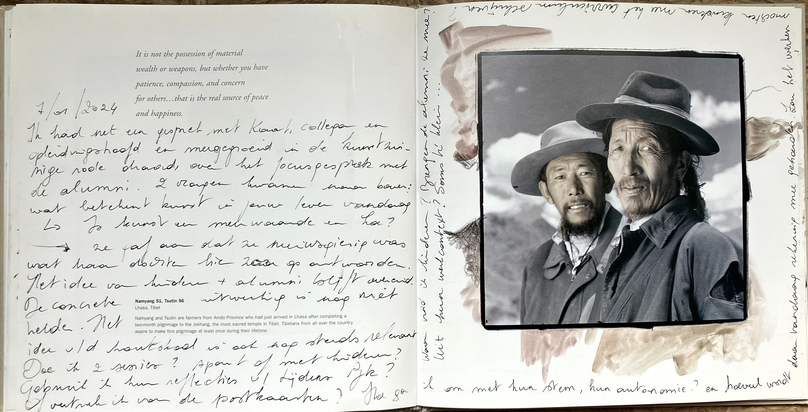 It is not the possession of material
wealth or weapons, but whether you have
patience, compassion, and concern
for others…that is the real source of peace
and happiness.
7/01/2024
Ik had net een gesprek met Kaat, collega en
opleidingshoofd en meegegroeid in de
rode draad, over het focusgesprek met
de alumni. 2 vragen kwamen naar boven:
wat betekent kunst in jouw leven vandaag
Is kunst een meerwaarde en hoe?
→ ze gaf aan dat ze nieuwsgierig was
wat haar dochter hier zou op antwoorden.
Het idee van kinderen + alumni blijft overeind.
De concrete uitwerking is nog niet
helder. Het
Namyang 51, Tsutin 56
Lhasa, Tibet
Namyang and Tsutin are farmers from Amdo Province who had just arrived in Lhasa after completing a
two-month pilgrimage to the Jokhang, the most sacred temple in Tibet. Tibetans from all over the country
aspire to make this pilgrimage at least once during their lifetime.
idee v/d houtskool is ook nog steeds relevant
Doe ik 2 sessies? Apart of met kinderen?
Gebruik ik hun reflecties v/
vertrek ik van de postkaarten?
Hoe ga
ik om met hun stem, hun autonomie? en hoeveel
daar vandaag rekening mee gehouden? Aan het werken
moeten kinderen mee het curriculum schrijven?
Waar nood is kinderen? Dragen de alumni ze mee?
Uit hun werkcontext? Soms te klein...